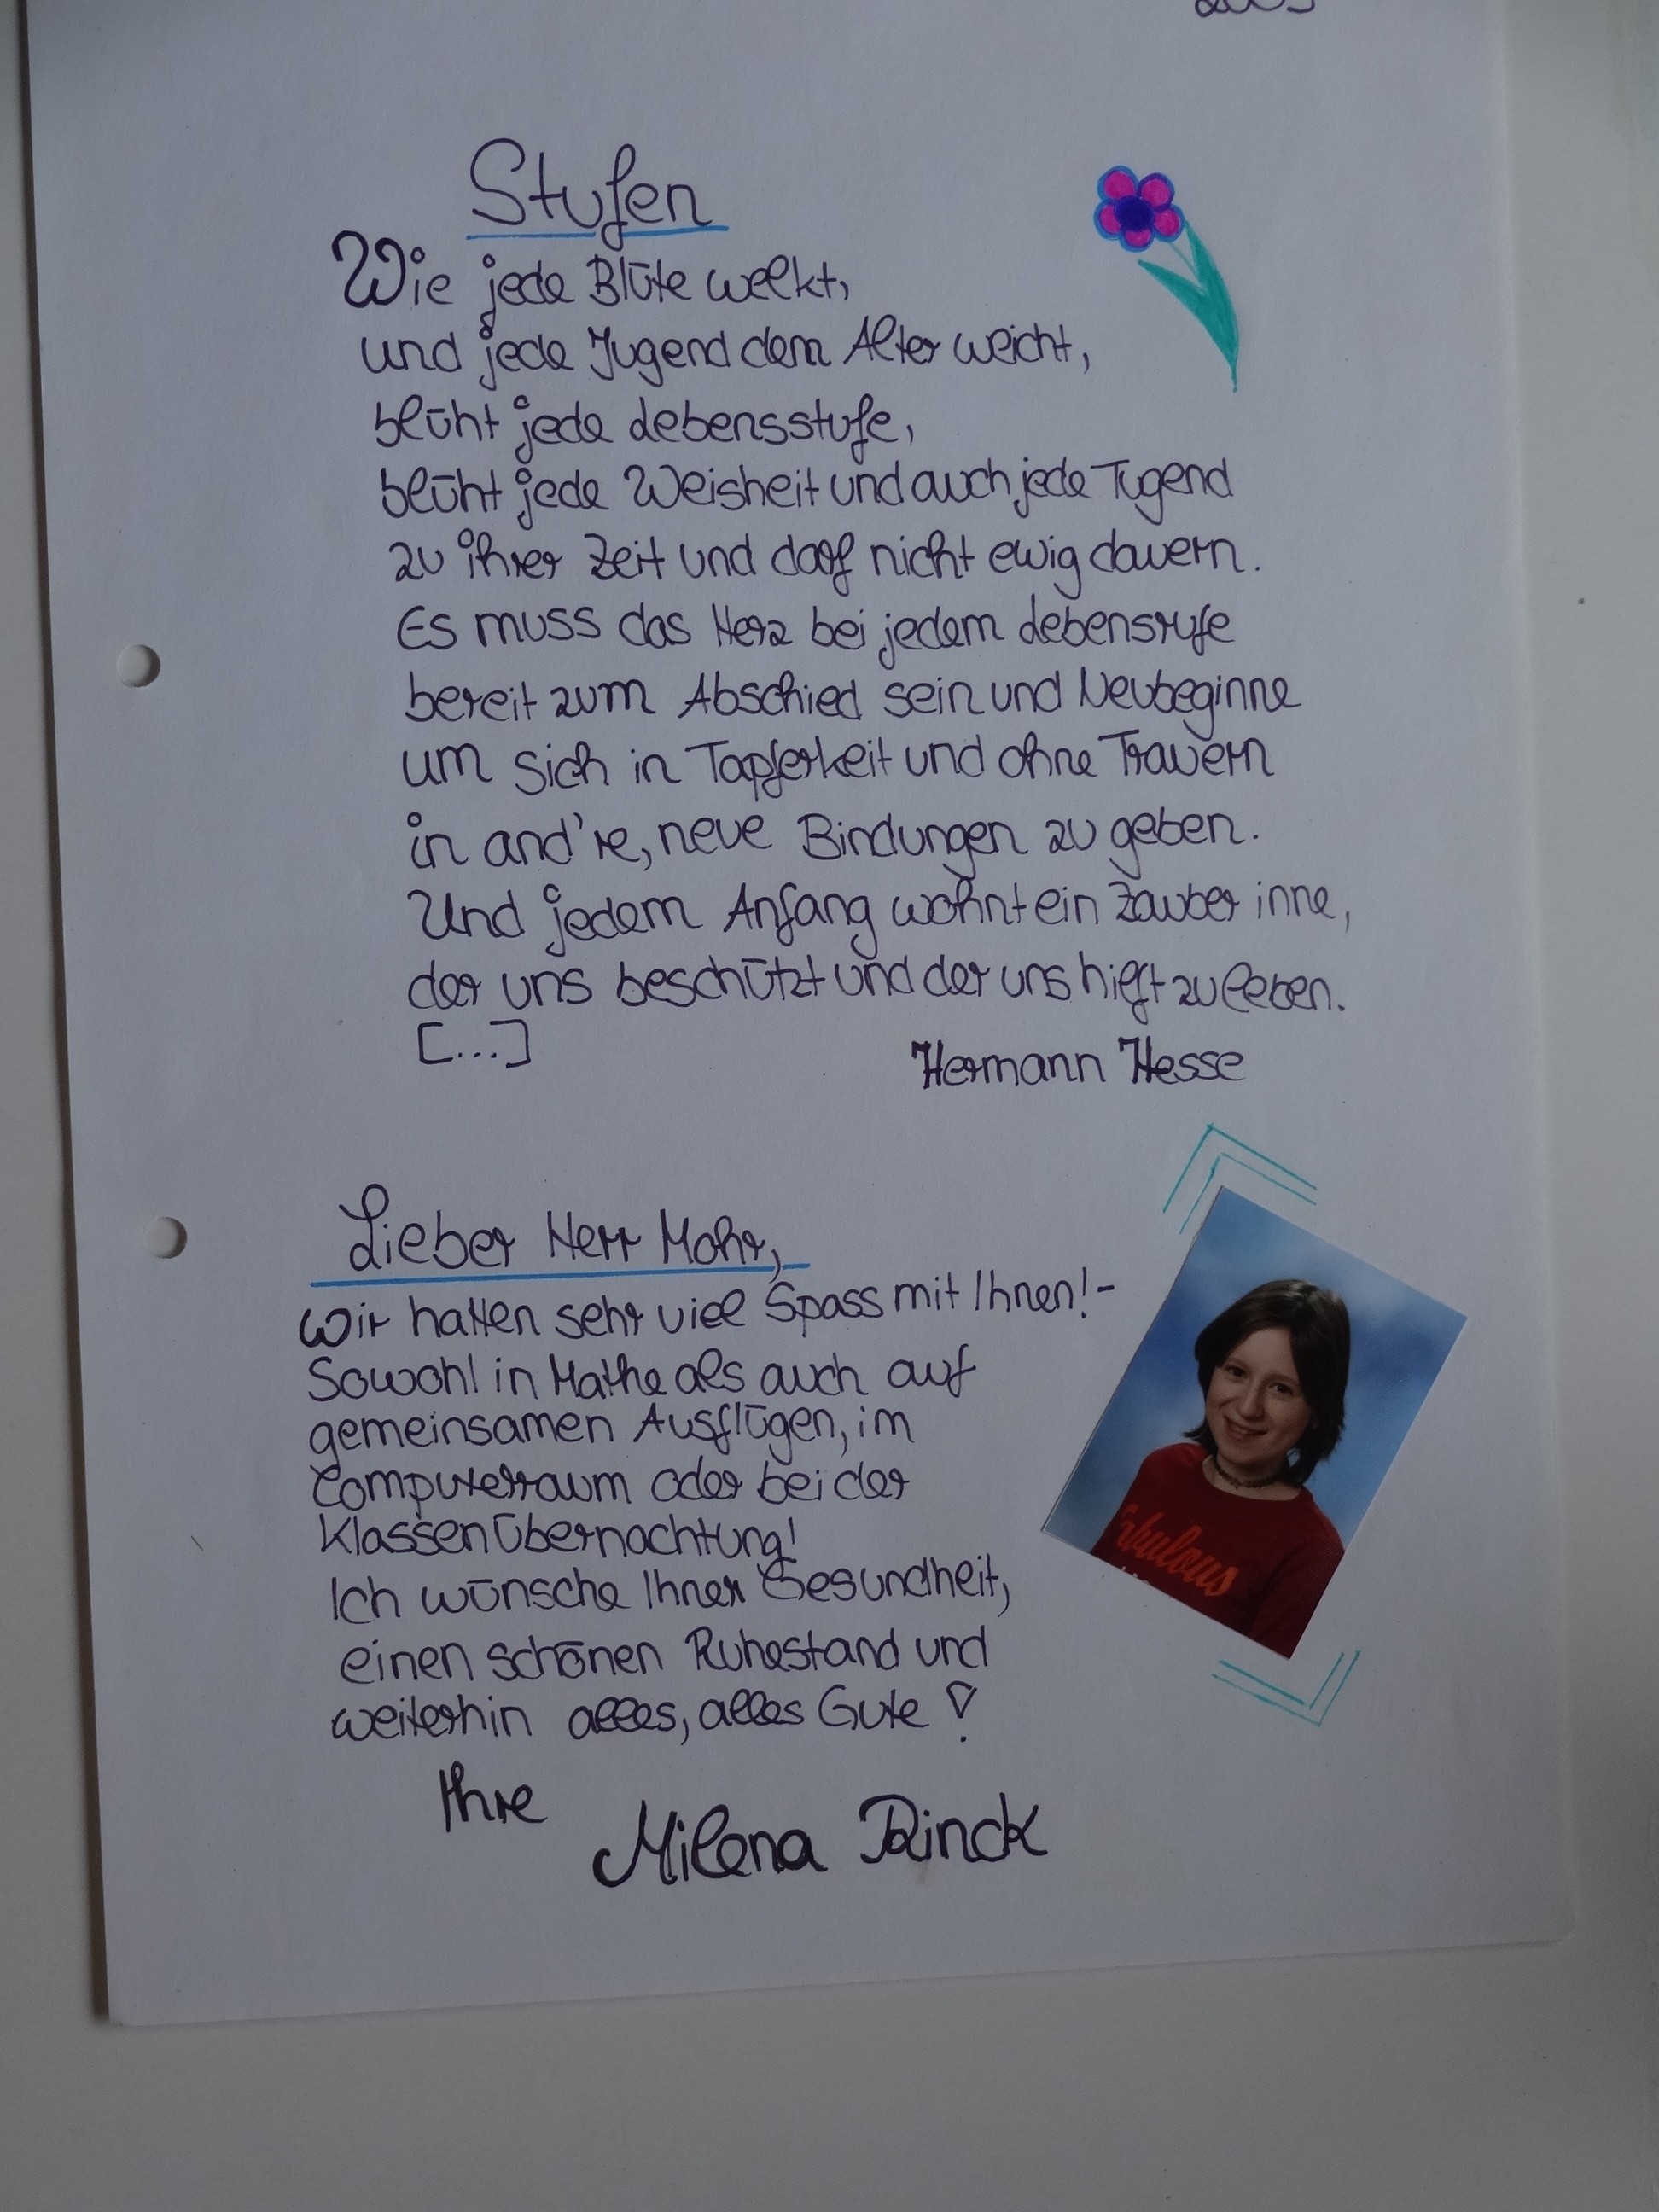 Stufen
Wie jede Blüte welkt,
und jede Jugend dem Alter weicht,
blüht jede Lebensstufe,
blüht jede Weisheit und auch jede Tugend
zu ihrer Zeit und darf nicht ewig dauern.
Es muss das Herz bei jedem Lebensrufe
bereit zum Abschied sein und Neubeginne
um sich in Tapferkeit und ohne Trauern
in and're, neue Bindungen zu geben.
Und jedem Anfang wohnt ein Zauber inne,
der uns beschützt und der uns hilft zu leben.
[...]
Hermann Hesse
Lieber Herr Mohr,
wir hatten sehr viel Spass mit Ihnen!-
Sowohl in Mathe als auch auf
gemeinsamen Ausflügen, im
Computerraum oder bei der
Klassenübernachtung!
Ich wünsche Ihnen Gesundheit,
einen schönen Ruhestand und
weiterhin alles, alles Gute!
Ihre
Milena Rinck
Fabulous